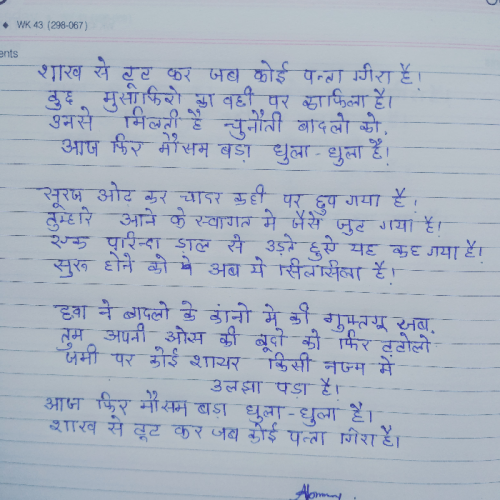 WK 43 (298-067)
ents
शाख से टूट कर जब कोई पत्ता गिरा है!
कुछ मुसाफिरो का वही पर काफिला है।
उनसे मिलती है चुनौती बादलो को,
आज फिर मौसम बड़ा धुला-धुला है!
सूरज ओट कर चादर कही पर छुप गया है!
तुम्हारे आने के स्वागत मे जैसे जुट गया है!
एक परिन्दा डाल से उड़ते हुऐ यह कह गया है!
सुरू होने को अब ये सिलसिला है!
हवा ने बादलो के कानो मे की गुफ्तगू अब,
तुम अपनी ओस की बूदो को फिर टटोलो
जमी पर कोई शायर किसी नज्म में
उलझा पड़ा है!
आज फिर मौसम बड़ा धुला-धुला है।
शाख से टूट कर जब कोई पत्ता गिरा है।